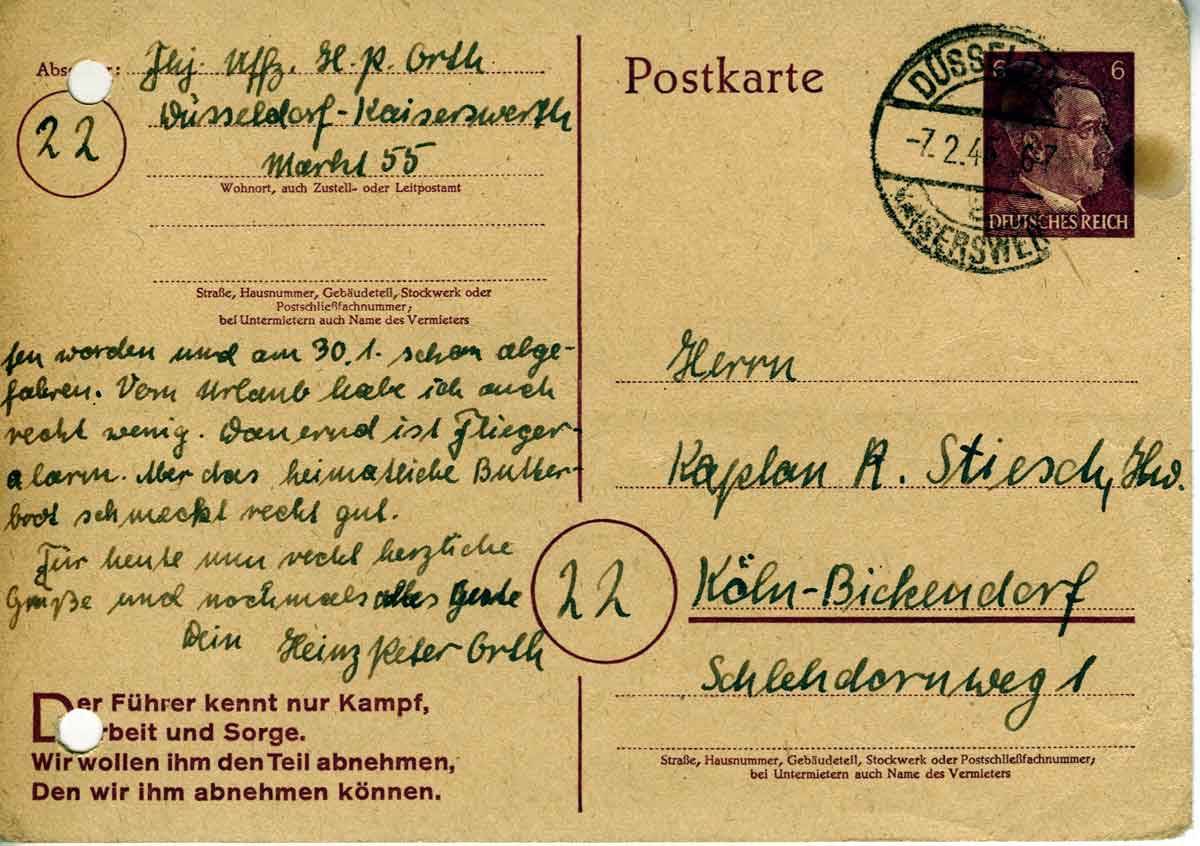 Absender:
Flg. Uffz. H. P. Orth
22
Düsseldorf-Kaiserswerth
Markt 55
Wohnort, auch Zustell- oder Leitpostamt
Straße, Hausnummer, Gebäudeteil, Stockwerk oder
Postschließfachnummer;
bei Untermietern auch Name des Vermieters
fen worden und am 30.1. schon abge-
fahren. Vom Urlaub habe ich auch
recht wenig. Dauernd ist Flieger-
alarm. Aber das heimatliche Butter-
brot schmeckt recht gut.
Für heute nun recht herzliche
Grüße und nochmals alles Gute
Dein Heinz Peter Orth
Der Führer kennt nur Kampf,
Arbeit und Sorge.
Wir wollen ihm den Teil abnehmen,
Den wir ihm abnehmen können.
Postkarte
DÜSSEL
-7.2.4
KAISERSWER
6 6
DEUTSCHES REICH
Herrn
Kaplan R. Stiesch,
22
Köln-Bickendorf
Schlehdornweg 1
Straße, Hausnummer, Gebäudeteil, Stockwerk oder Postschließfachnummer;
bei Untermietern auch Name des Vermieters